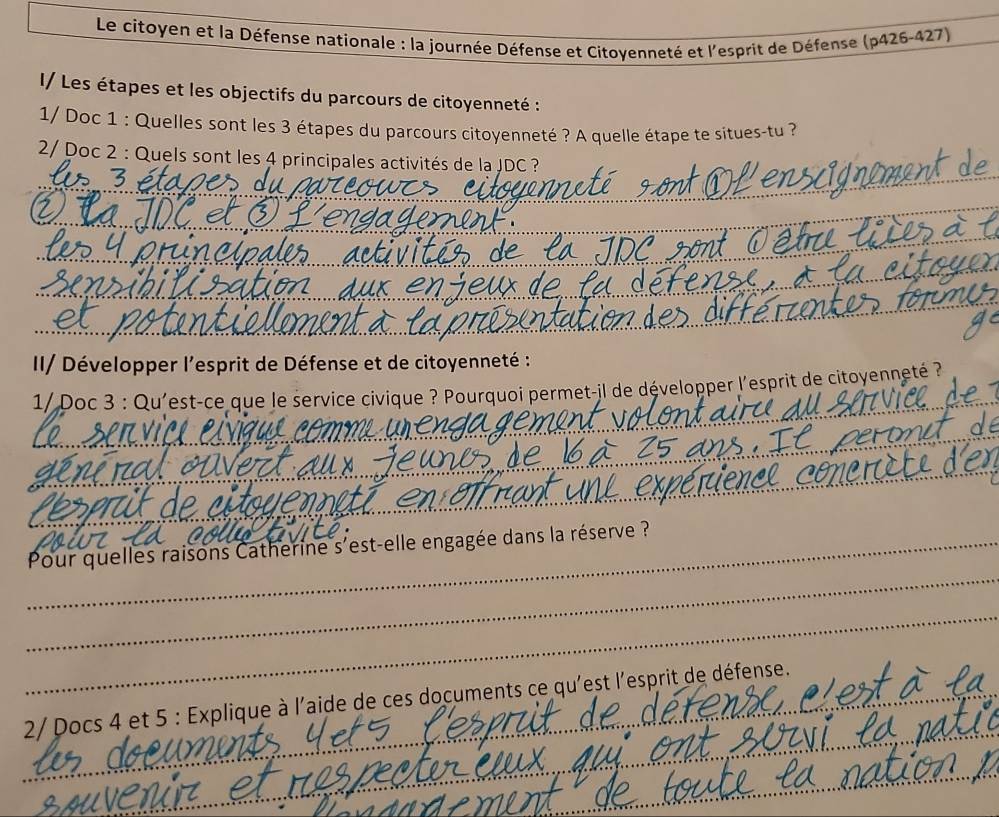 Le citoyen et la Défense nationale : la journée Défense et Citoyenneté et l'esprit de Défense (p426-427)
I/ Les étapes et les objectifs du parcours de citoyenneté :
1/ Doc 1 : Quelles sont les 3 étapes du parcours citoyenneté ? A quelle étape te situes-tu ?
2/ Doc 2 : Quels sont les 4 principales activités de la JDC ?
les 3 étapes du parcours citoyenneté sont ① l'enseignement de
② la JDC et ③ l'engagement.
les 4 principales activités de la JDC sont être liées à
sensibilisation aux enjeux de la défense, à la citoyen
et potentiellement à la présentation des différentes formes
II/ Développer l'esprit de Défense et de citoyenneté :
1/ Doc 3 : Qu'est-ce que le service civique ? Pourquoi permet-il de développer l'esprit de citoyenneté ?
le service civique comme un engagement volontaire au service de
général ouvert aux jeunes de 16 à 25 ans. Il permet de
l'esprit de citoyenneté en offrant une expérience concrète d'en
pour la collectivité.
Pour quelles raisons Catherine s'est-elle engagée dans la réserve ?
2/ Docs 4 et 5 : Explique à l'aide de ces documents ce qu'est l'esprit de défense.
les documents 4 et 5 l'esprit de défense, c'est à la
souvenir et respecter ceux qui ont servi la natio
de toute la nation